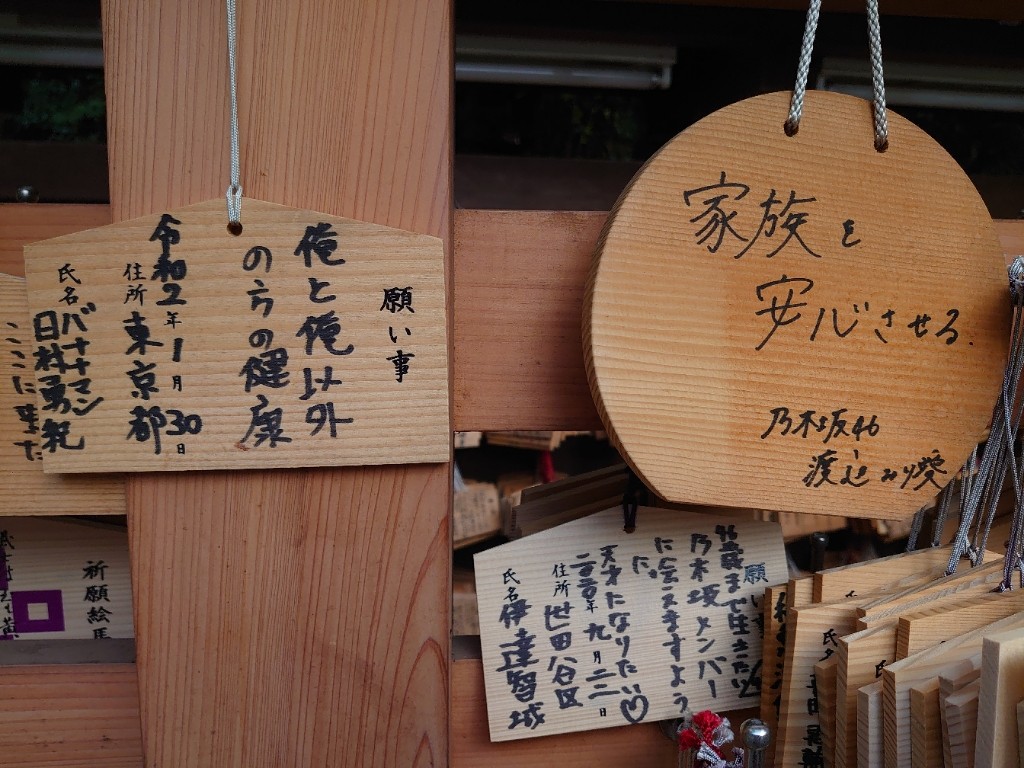 願い事
俺と俺以外
の方の健康
令和2年1月30日
住所 東京都
氏名 バナナマン
日村勇紀
ここに来た
祈願絵馬
家族を
安心させる.
乃木坂46
渡辺みり愛
願い事
96歳まで生きたい
乃木坂メンバー
に会えますよう
に。
天才になりたい♡
二〇二〇年九月二二日
住所 世田谷区
氏名 伊達智城
氏名
氏